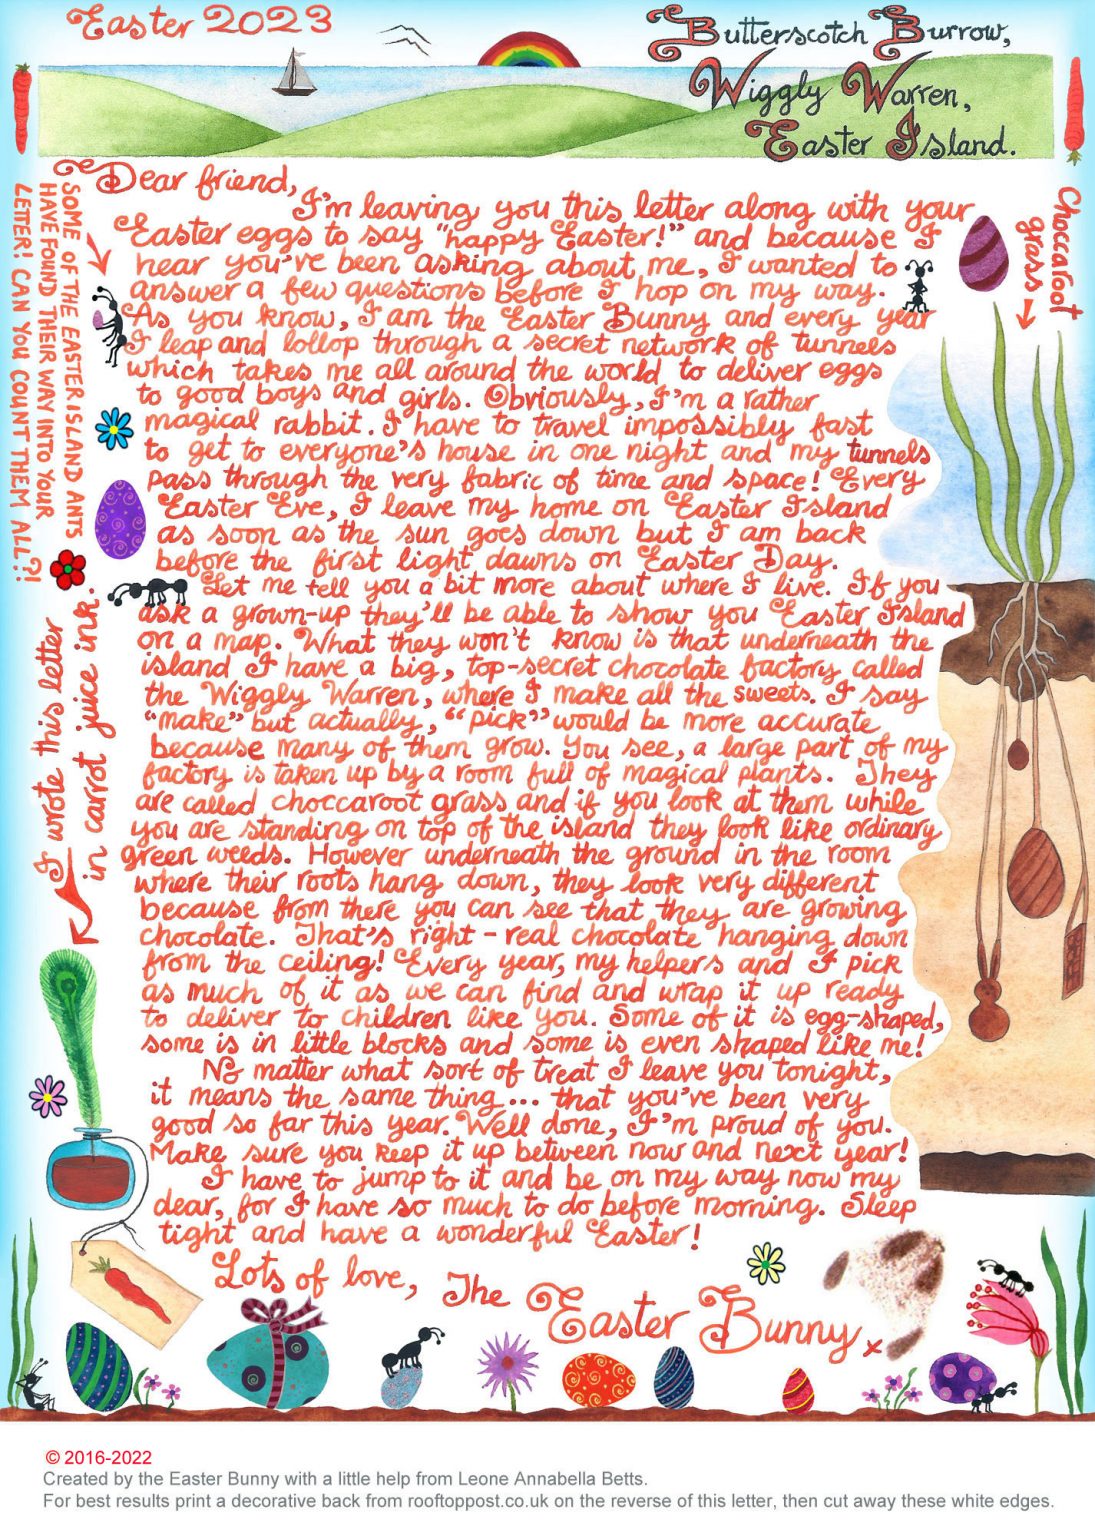 Easter 2023
Butterscotch Burrow,
Wiggly Warren,
Easter Island.
Dear friend,
I'm leaving you this letter along with your
Easter eggs to say "happy Easter!" and because I
hear you've been asking about me, I wanted to
answer a few questions before I hop on my way.
As you know, I am the Easter Bunny and every year
I leap and lollop through a secret network of tunnels
which takes me all around the world to deliver eggs
to good boys and girls. Obviously, I'm a rather
magical rabbit. I have to travel impossibly fast
to get to everyone's house in one night and my tunnels
pass through the very fabric of time and space! Every
Easter Eve, I leave my home on Easter Island
as soon as the sun goes down but I am back
before the first light dawns on Easter Day.
Let me tell you a bit more about where I live. If you
ask a grown-up they'll be able to show you Easter Island
on a map. What they won't know is that underneath the
island I have a big, top-secret chocolate factory called
the Wiggly Warren, where I make all the sweets. I say
"make" but actually, "pick" would be more accurate
because many of them grow. You see, a large part of my
factory is taken up by a room full of magical plants. They
are called choccaroot grass and if you look at them while
you are standing on top of the island they look like ordinary
green weeds. However underneath the ground in the room
where their roots hang down, they look very different
because from there you can see that they are growing
chocolate. That's right - real chocolate hanging down
from the ceiling! Every year, my helpers and I pick
as much of it as we can find and wrap it up ready
to deliver to children like you. Some of it is egg-shaped,
some is in little blocks and some is even shaped like me!
No matter what sort of treat I leave you tonight,
it means the same thing... that you've been very
good so far this year. Well done, I'm proud of you.
Make sure you keep it up between now and next year!
I have to jump to it and be on my way now my
dear, for I have so much to do before morning. Sleep
tight and have a wonderful Easter!
Lots of love, The Easter Bunny x
SOME OF THE EASTER ISLAND ANTS
HAVE FOUND THEIR WAY INTO YOUR
LETTER! CAN YOU COUNT THEM ALL?!
I wrote this letter
in carrot juice ink.
Choccaroot
grass
© 2016-2022
Created by the Easter Bunny with a little help from Leone Annabella Betts.
For best results print a decorative back from rooftoppost.co.uk on the reverse of this letter, then cut away these white edges.